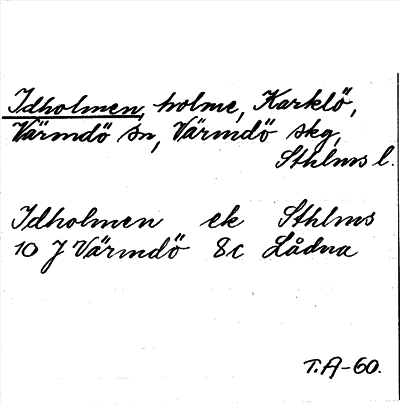 Idholmen, holme, Karklö,
Värmdö sn, Värmdö skg,
Sthlms l.
Idholmen ek Sthlms
10 J Värmdö 8c Lådna
T.A-60.